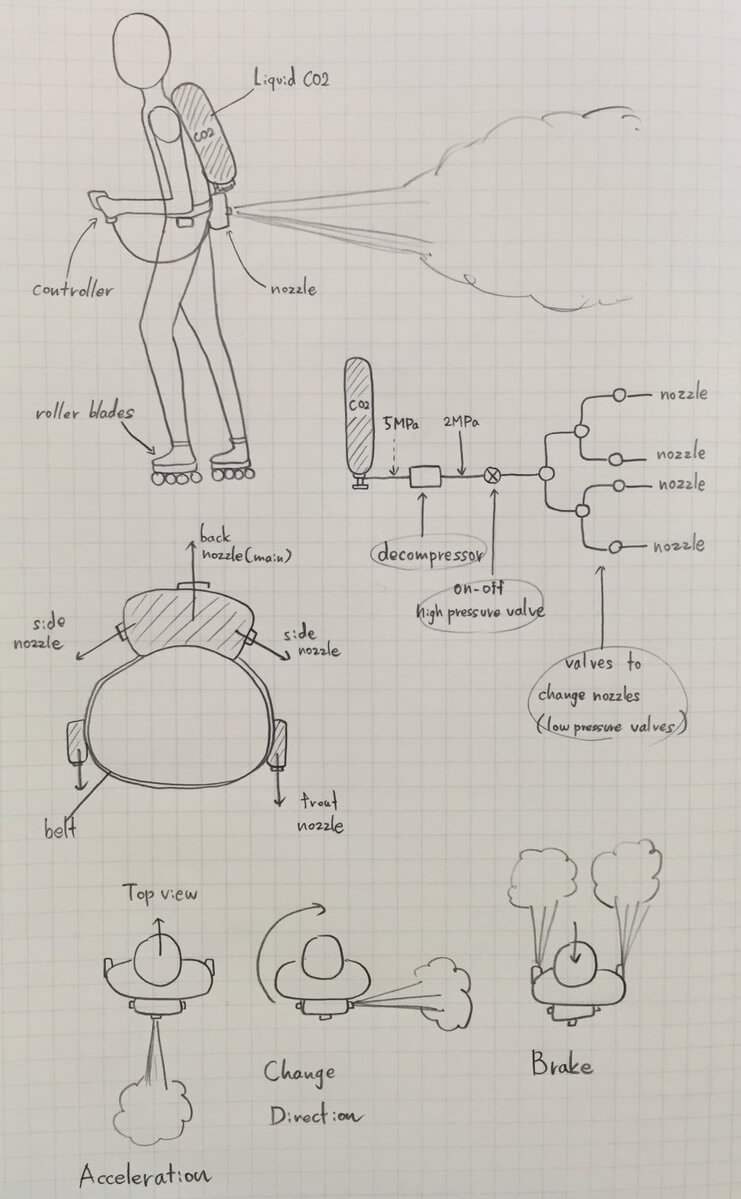 Liquid CO2
CO2
controller
nozzle
roller blades
CO2
5MPa
2MPa
nozzle
nozzle
nozzle
nozzle
decompressor
on-off
high pressure valve
valves to
change nozzles
(low pressure valves)
back
nozzle(main)
side
nozzle
side
nozzle
front
nozzle
belt
Top view
Acceleration
Change
Direction
Brake